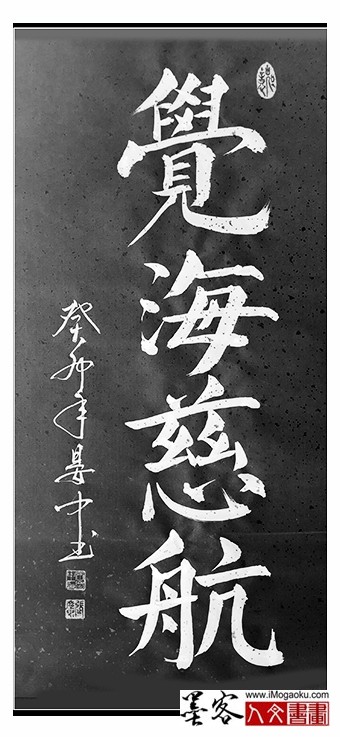 覺海慈航
癸卯年晏中书
墨客
www.iMogaoku.com
人文書畫